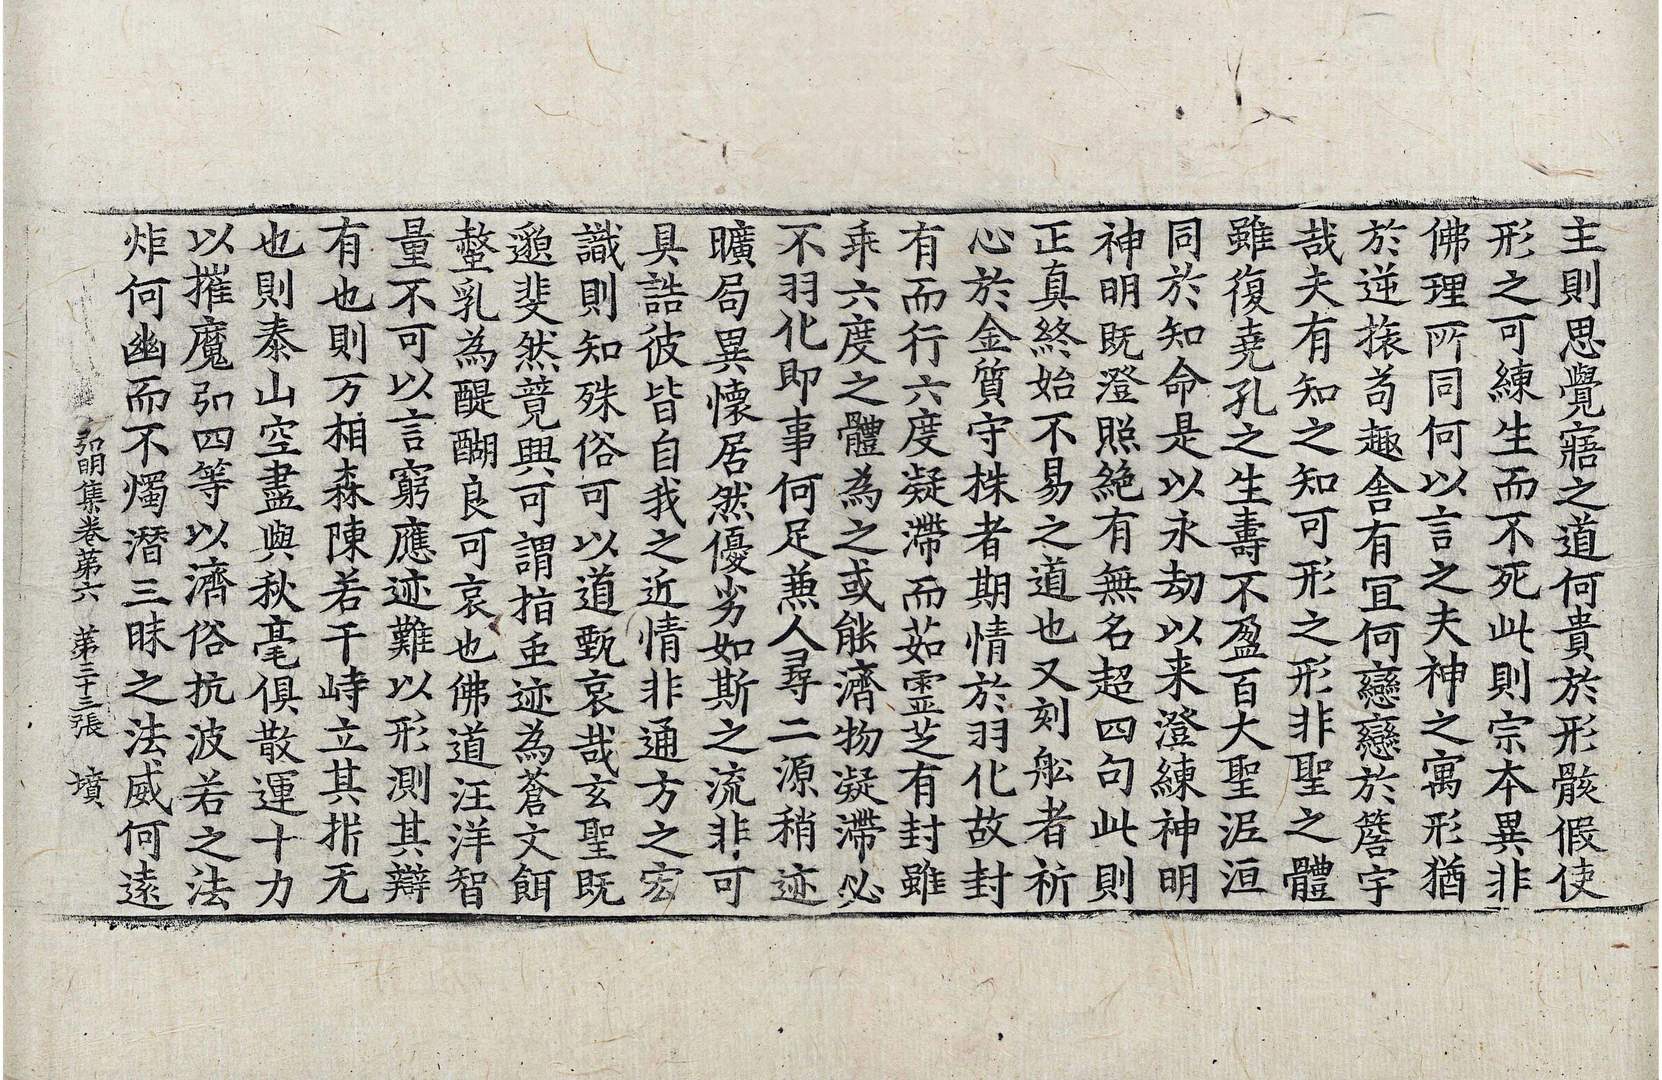 主則思覺寤之道何貴於形骸假使
形之可練生而不死此則宗本異非
佛理所同何以言之夫神之寓形猶
於逆旅苟趣舍有冝何戀戀於簷宇
哉夫有知之知可形之形非聖之體
雖復堯孔之生壽不盈百大聖泥洹
同於知命是以永劫以来澄練神明
神明既澄照絶有無名超四句此則
正真終始不易之道也又刻舩者祈
心於金質守株者期情於羽化故封
有而行六度凝滯而茹靈芝有封雖
乘六度之體為之或能濟物凝滯必
不羽化即事何足兼人尋二源稍迹
曠局異懷居然優劣如斯之流非可
具誥彼皆自我之近情非通方之宏
識則知殊俗可以道甄哀哉玄聖既
邈斐然竟興可謂指虫迹為蒼文餌
螫乳為醍醐良可哀也佛道汪洋智
量不可以言窮應迹難以形測其辯
有也則万相森陳若千峙立其析无
也則泰山空盡與秋毫俱散運十力
以摧魔弘四等以濟俗抗波若之法
炬何幽而不燭潛三昧之法威何遠
弘明集卷第六 第三十三張 墳